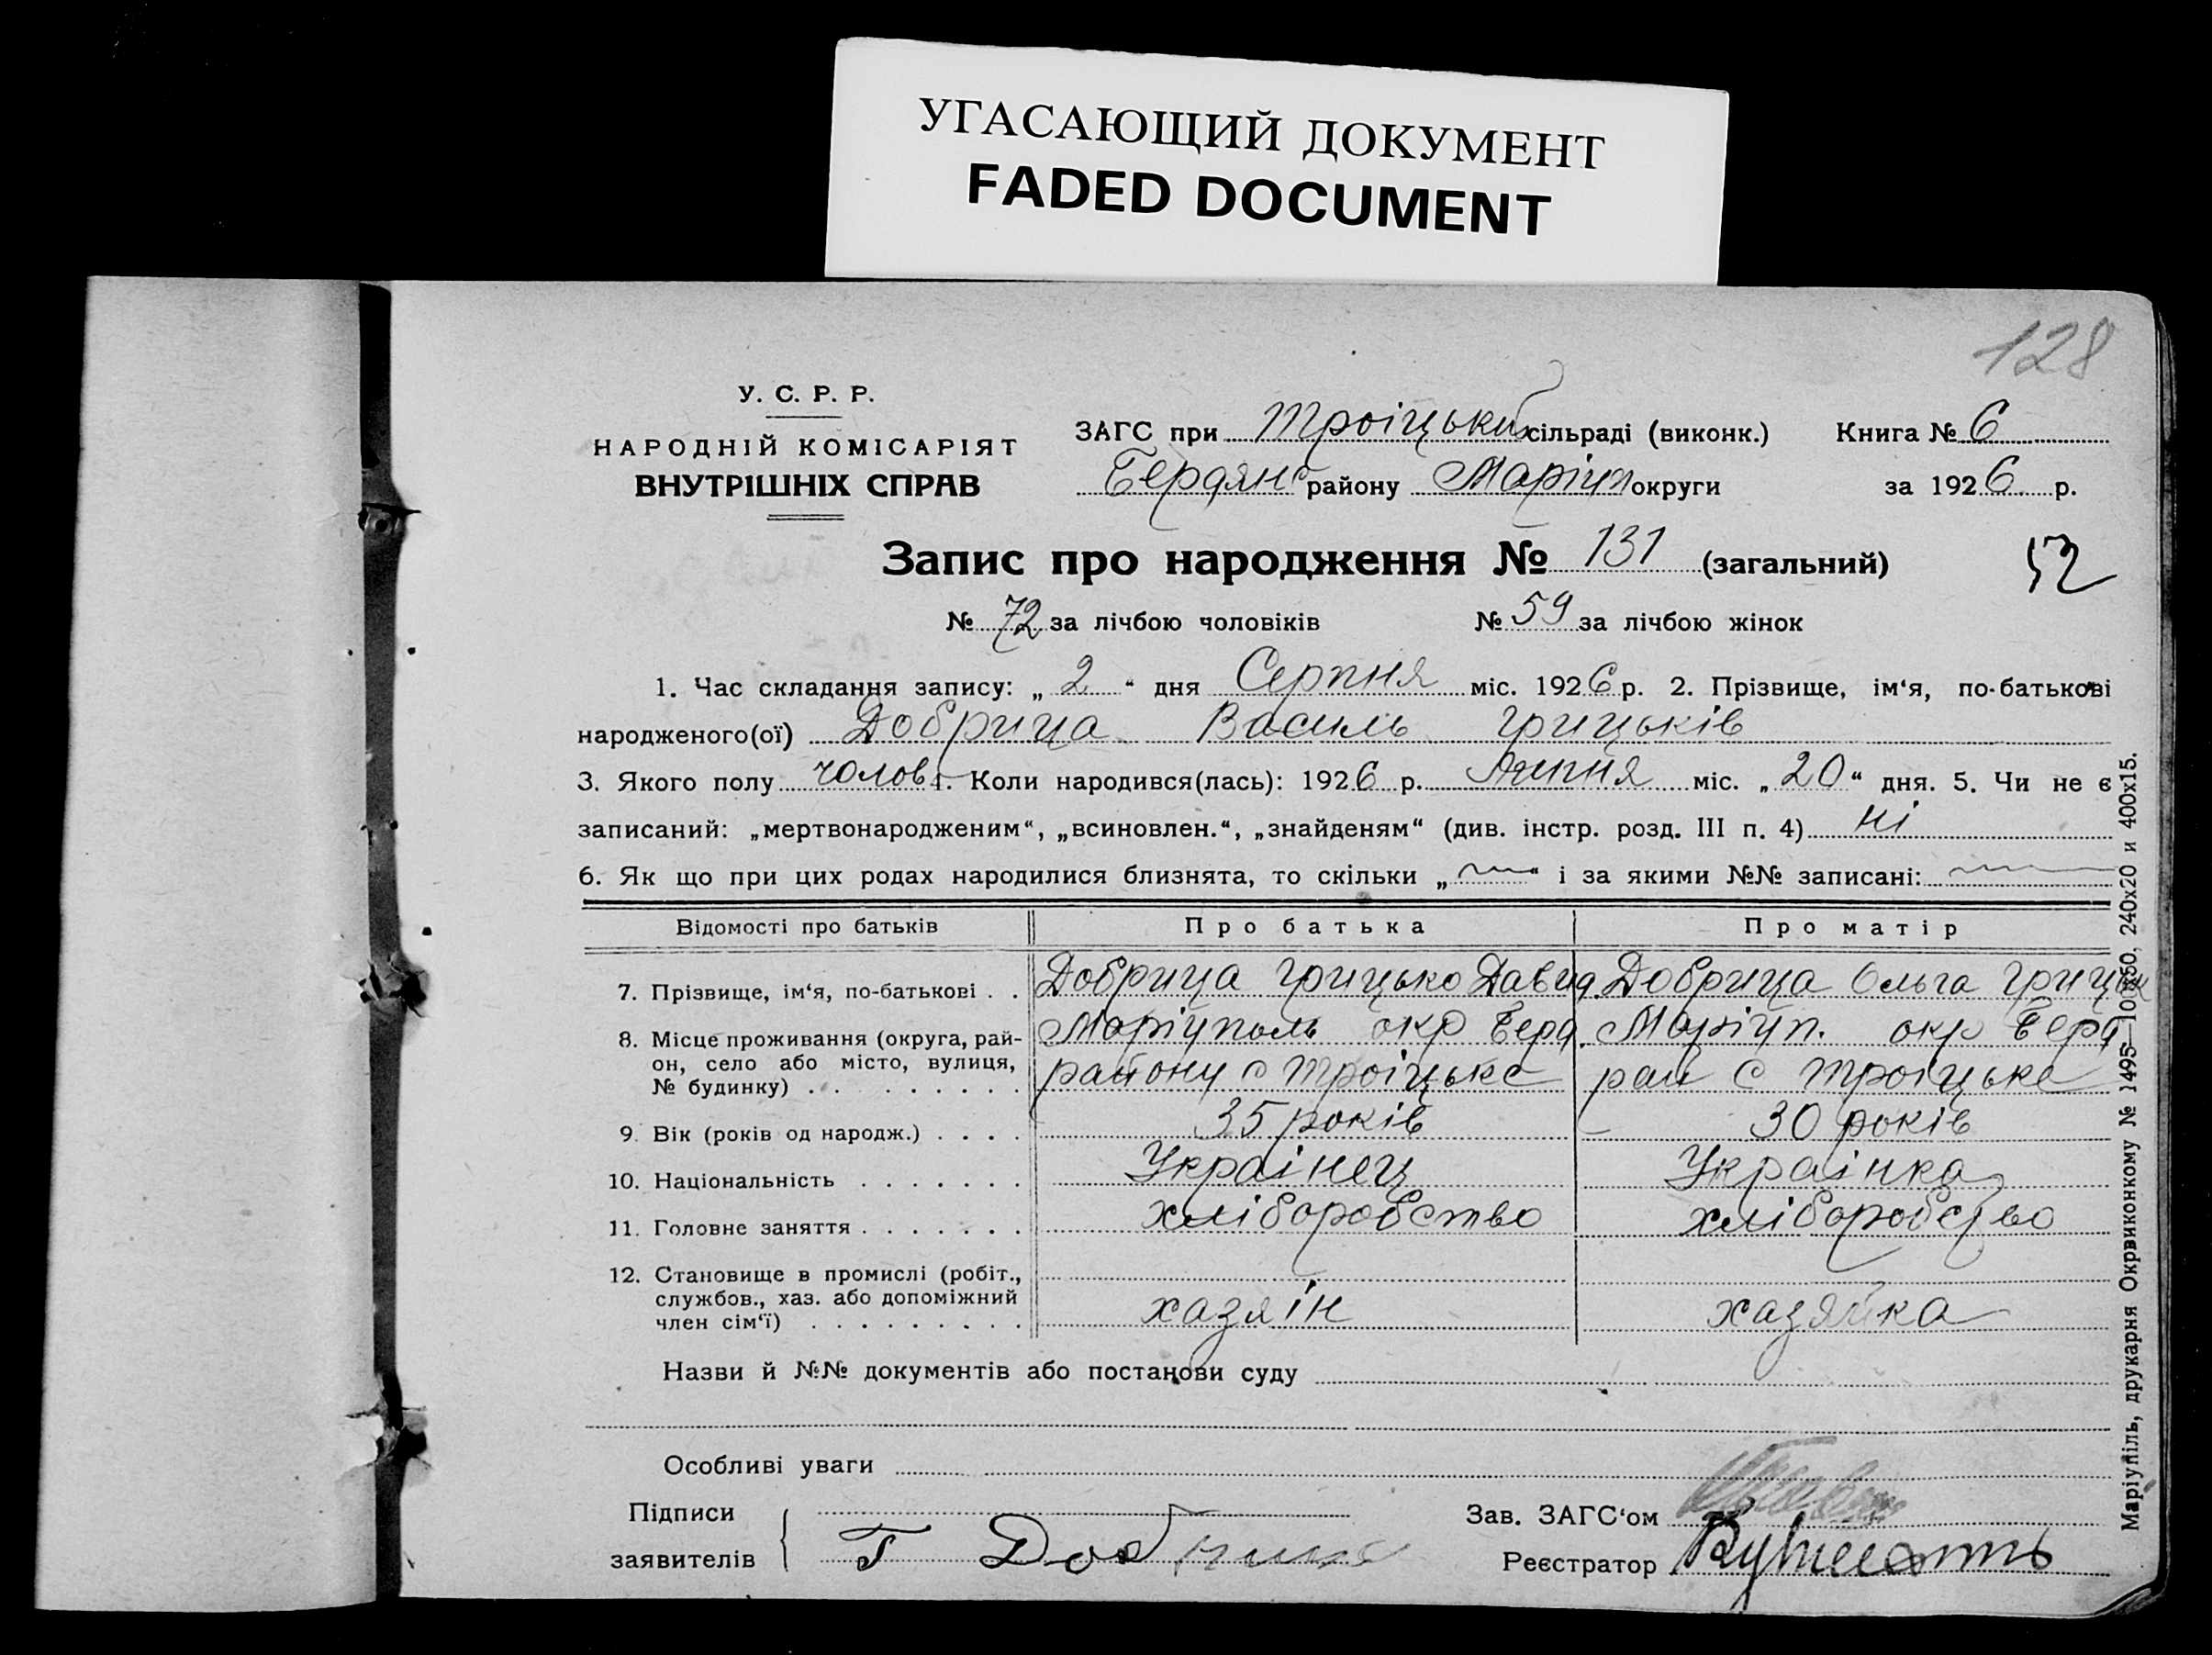 УГАСАЮЩИЙ ДОКУМЕНТ
FADED DOCUMENT
128
У. С. Р. Р.
НАРОДНІЙ КОМІСАРІЯТ
ВНУТРІШНІХ СПРАВ
ЗАГС при Троіцький сільраді (виконк.) Книга № 6
Бердянс району Маріуп округи за 1926 р.
Запис про народження № 131 (загальний)
52
№ 72 за лічбою чоловіків № 59 за лічбою жінок
1. Час складання запису: „ 2 “ дня Серпня міс. 1926 р. 2. Прізвище, ім‘я, по-батькові
народженого(ої) Добрица Василь Грицьків
3. Якого полу чолов 4. Коли народився(лась): 1926 р. Липня міс. „ 20 “ дня. 5. Чи не є
записаний: „мертвонародженим“, „всиновлен.“, „знайденям“ (див. інстр. розд. III п. 4) ні
6. Як що при цих родах народилися близнята, то скільки „ “ і за якими №№ записані:
Відомості про батьків Про батька Про матір
7. Прізвище, ім‘я, по-батькові . . Добрица Грицько Давид. Добрица Ольга Грицьк
8. Місце проживання (округа, рай- Маріуполь окр Берд. Маріуп. окр Берд
он, село або місто, вулиця, району с Троіцьке рай с Троіцьке
№ будинку) . . . . . . . .
9. Вік (років од народж.) . . . . 35 років 30 років
10. Національність . . . . . . . Украінец Украінка
11. Головне заняття . . . . . . . хліборобство хліборобство
12. Становище в промислі (робіт.,
службов., хаз. або допоміжний хазяін хазяйка
член сім‘ї) . . . . . . . . .
Назви й №№ документів або постанови суду
Особливі уваги
Підписи Зав. ЗАГС‘ом
заявителів Г Добрица Реєстратор
Маріупіль, друкарня Окрвиконкому № 1495—100х50, 240х20 и 400х15.